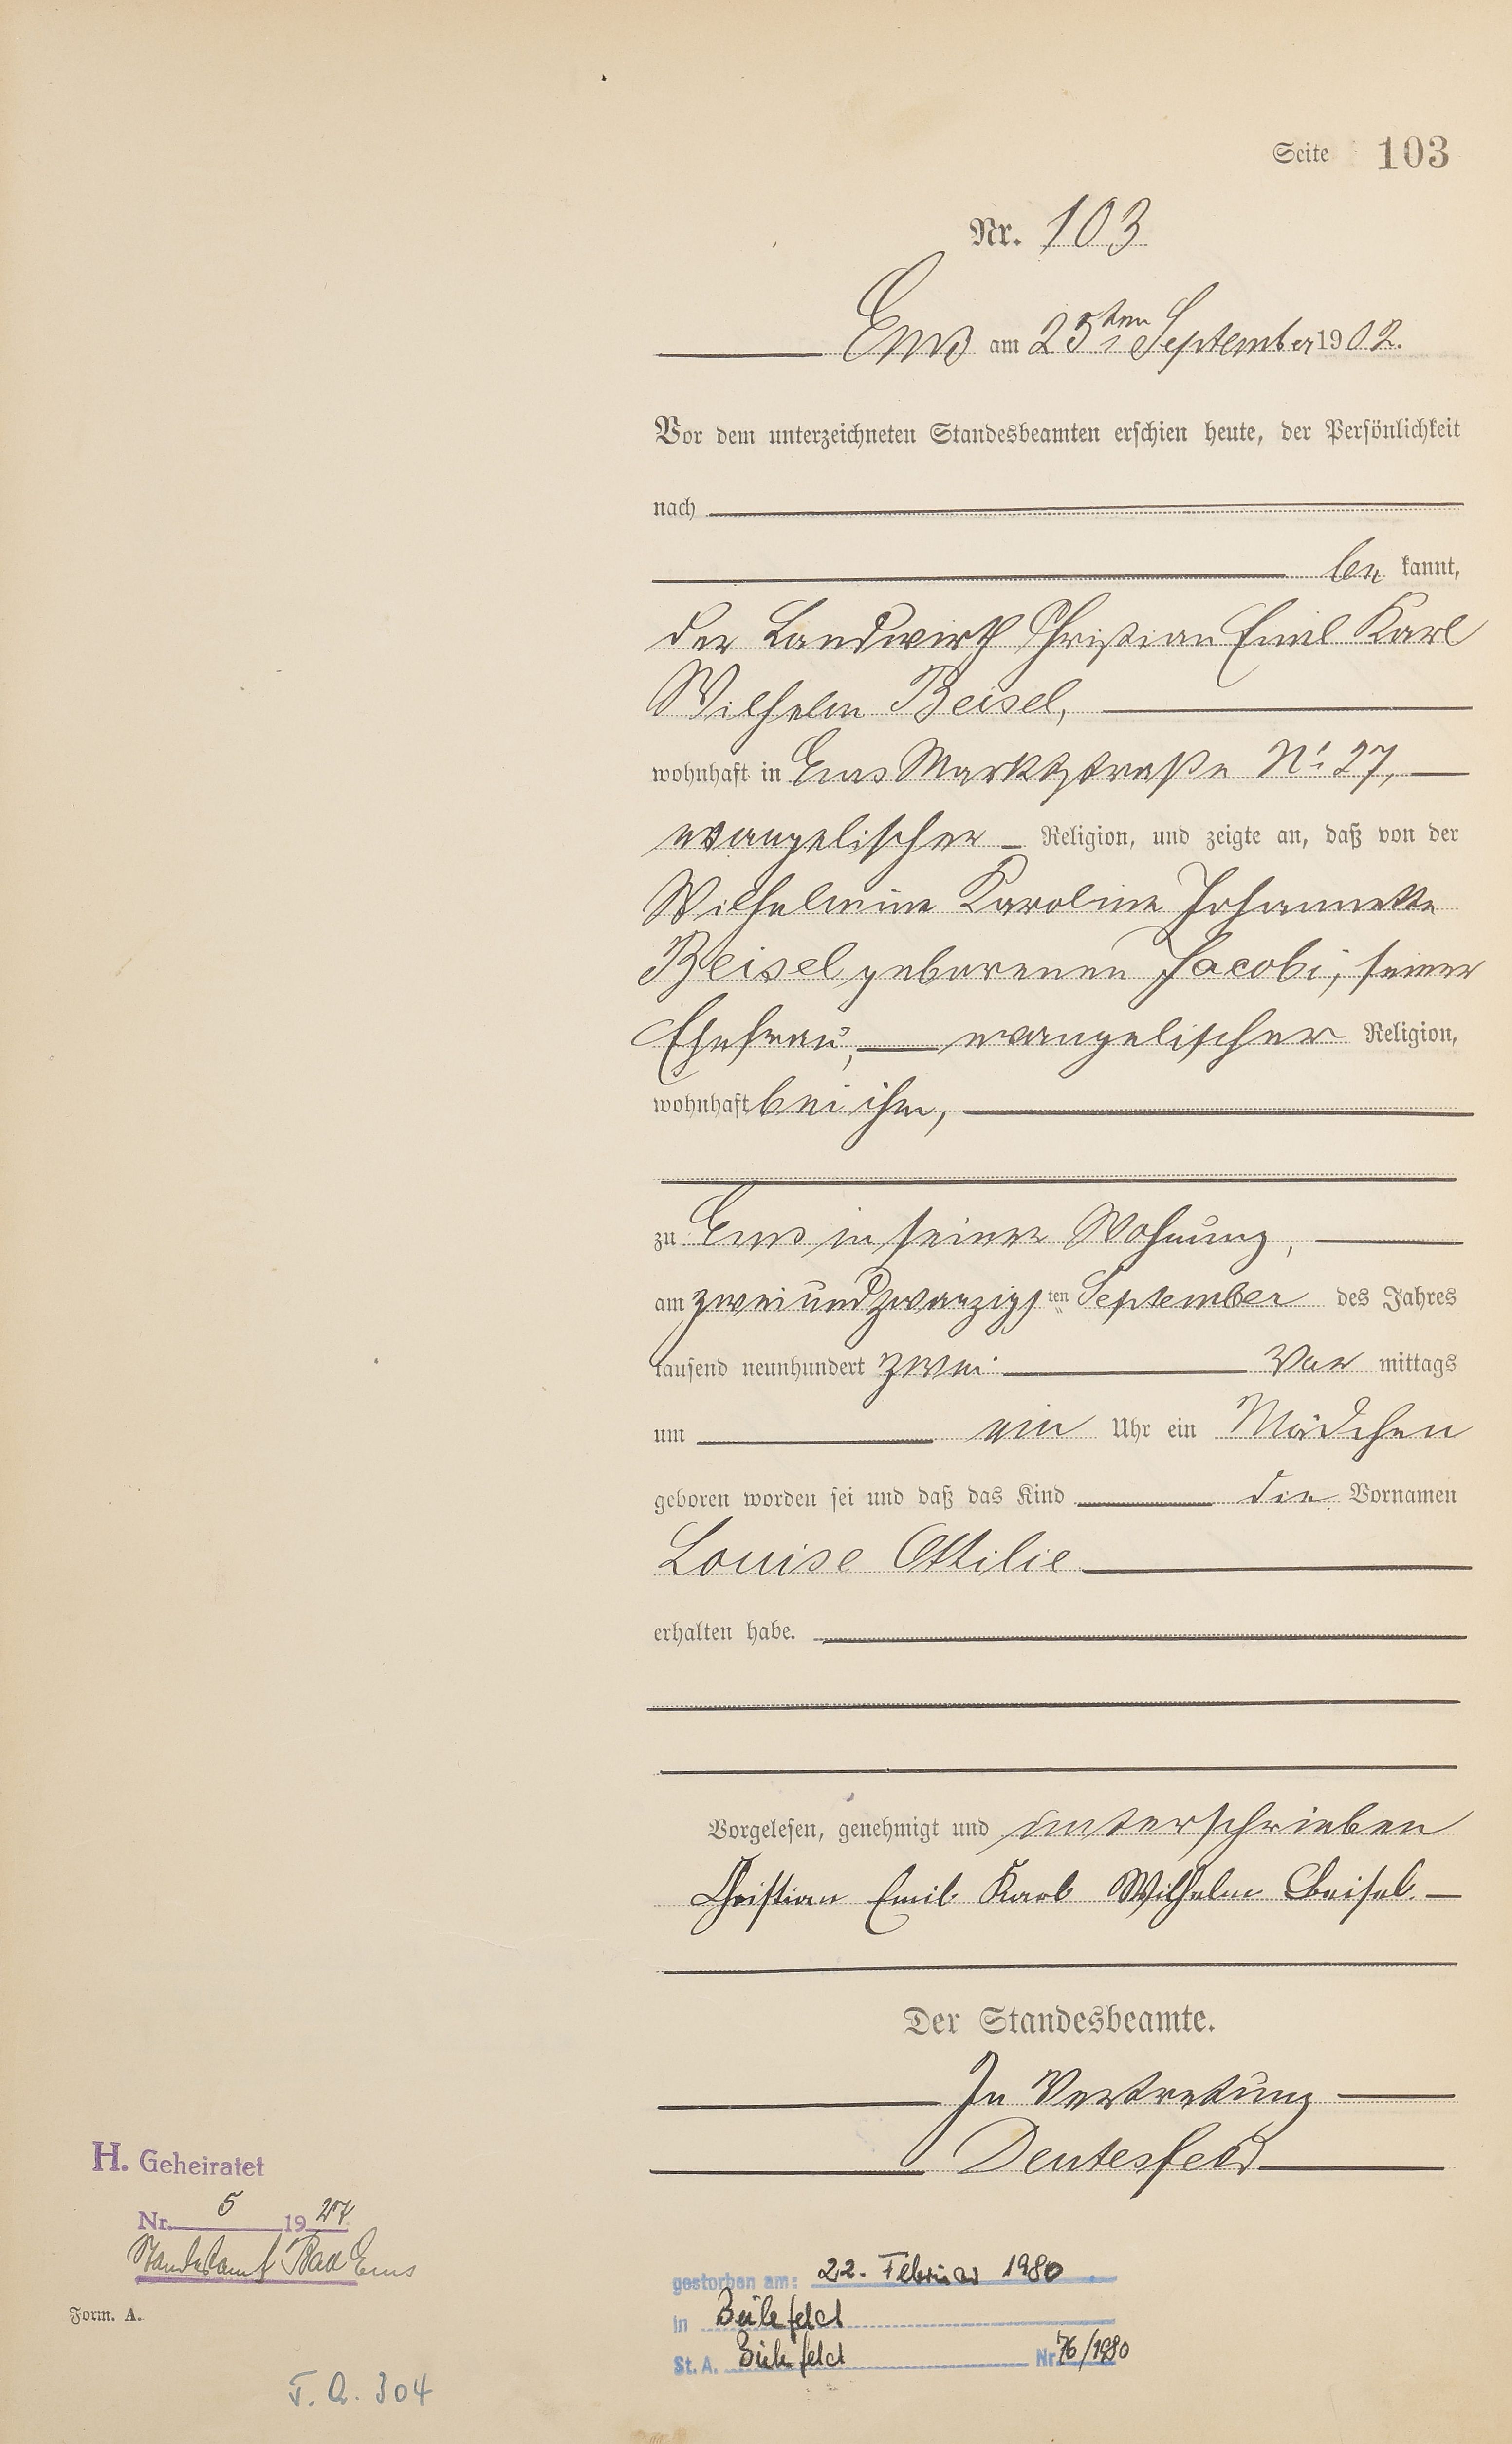 Seite 103
Nr. 103
Ems am 25ten September 1902.
Vor dem unterzeichneten Standesbeamten erschien heute, der Persönlichkeit
nach
be kannt,
der Landwirth Christian Emil Karl
Wilhelm Beisel,
wohnhaft in Ems Marktstraße No 27,
evangelischer Religion, und zeigte an, daß von der
Wilhelmine Karoline Johannette
Beisel geborenen Jacobi, seiner
Ehefrau, evangelischer Religion,
wohnhaft bei ihm,
zu Ems in seiner Wohnung,
am zweiundzwanzigsten September des Jahres
tausend neunhundert zwei Vor mittags
um ein Uhr ein Mädchen
geboren worden sei und daß das Kind die Vornamen
Louise Ottilie
erhalten habe.
Vorgelesen, genehmigt und unterschrieben
Christian Emil Karl Wilhelm Beisel.
Der Standesbeamte.
In Vertretung
Deutesfeld
H. Geheiratet
Nr. 5 1927
Standesamt Bad Ems
Form. A.
gestorben am: 22. Februar 1980
in Bielefeld
St. A. Bielefeld Nr. 76/1980
T. A. 304